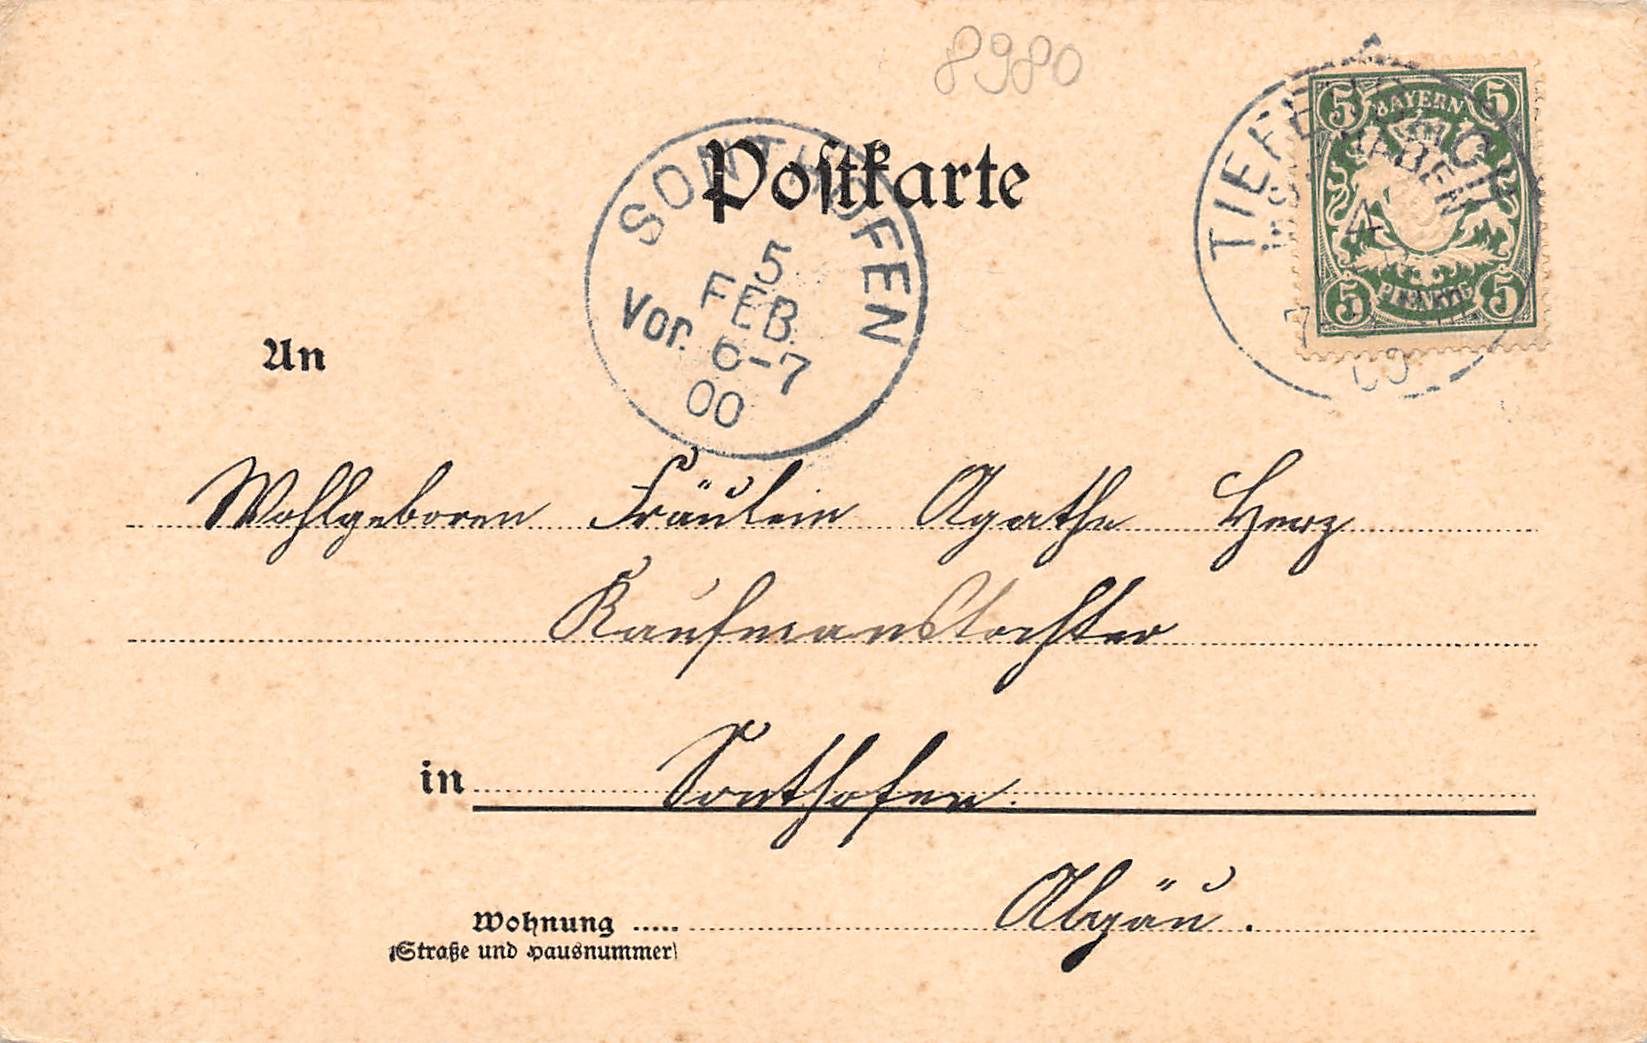 8980
Postkarte
SONTHOFEN
5
FEB.
Vor. 6-7
00
5 BAYERN 5
5 PFENNIG 5
TIEFENBACH
SCHWABEN
4
An
Wohlgeboren Fräulein Agathe Herz
Kaufmanstochter
in Sonthofen.
Wohnung ..... Algäu.
(Straße und Hausnummer)